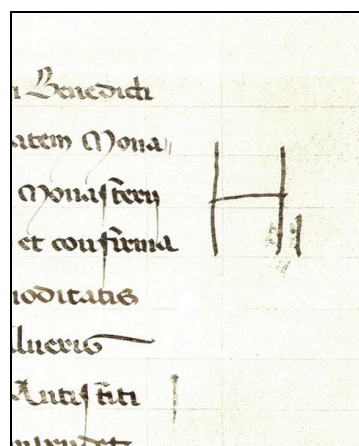 i Benedicti
atem Mona
Monasterij
et confirma
moditatis
lueris
Antistiti
H